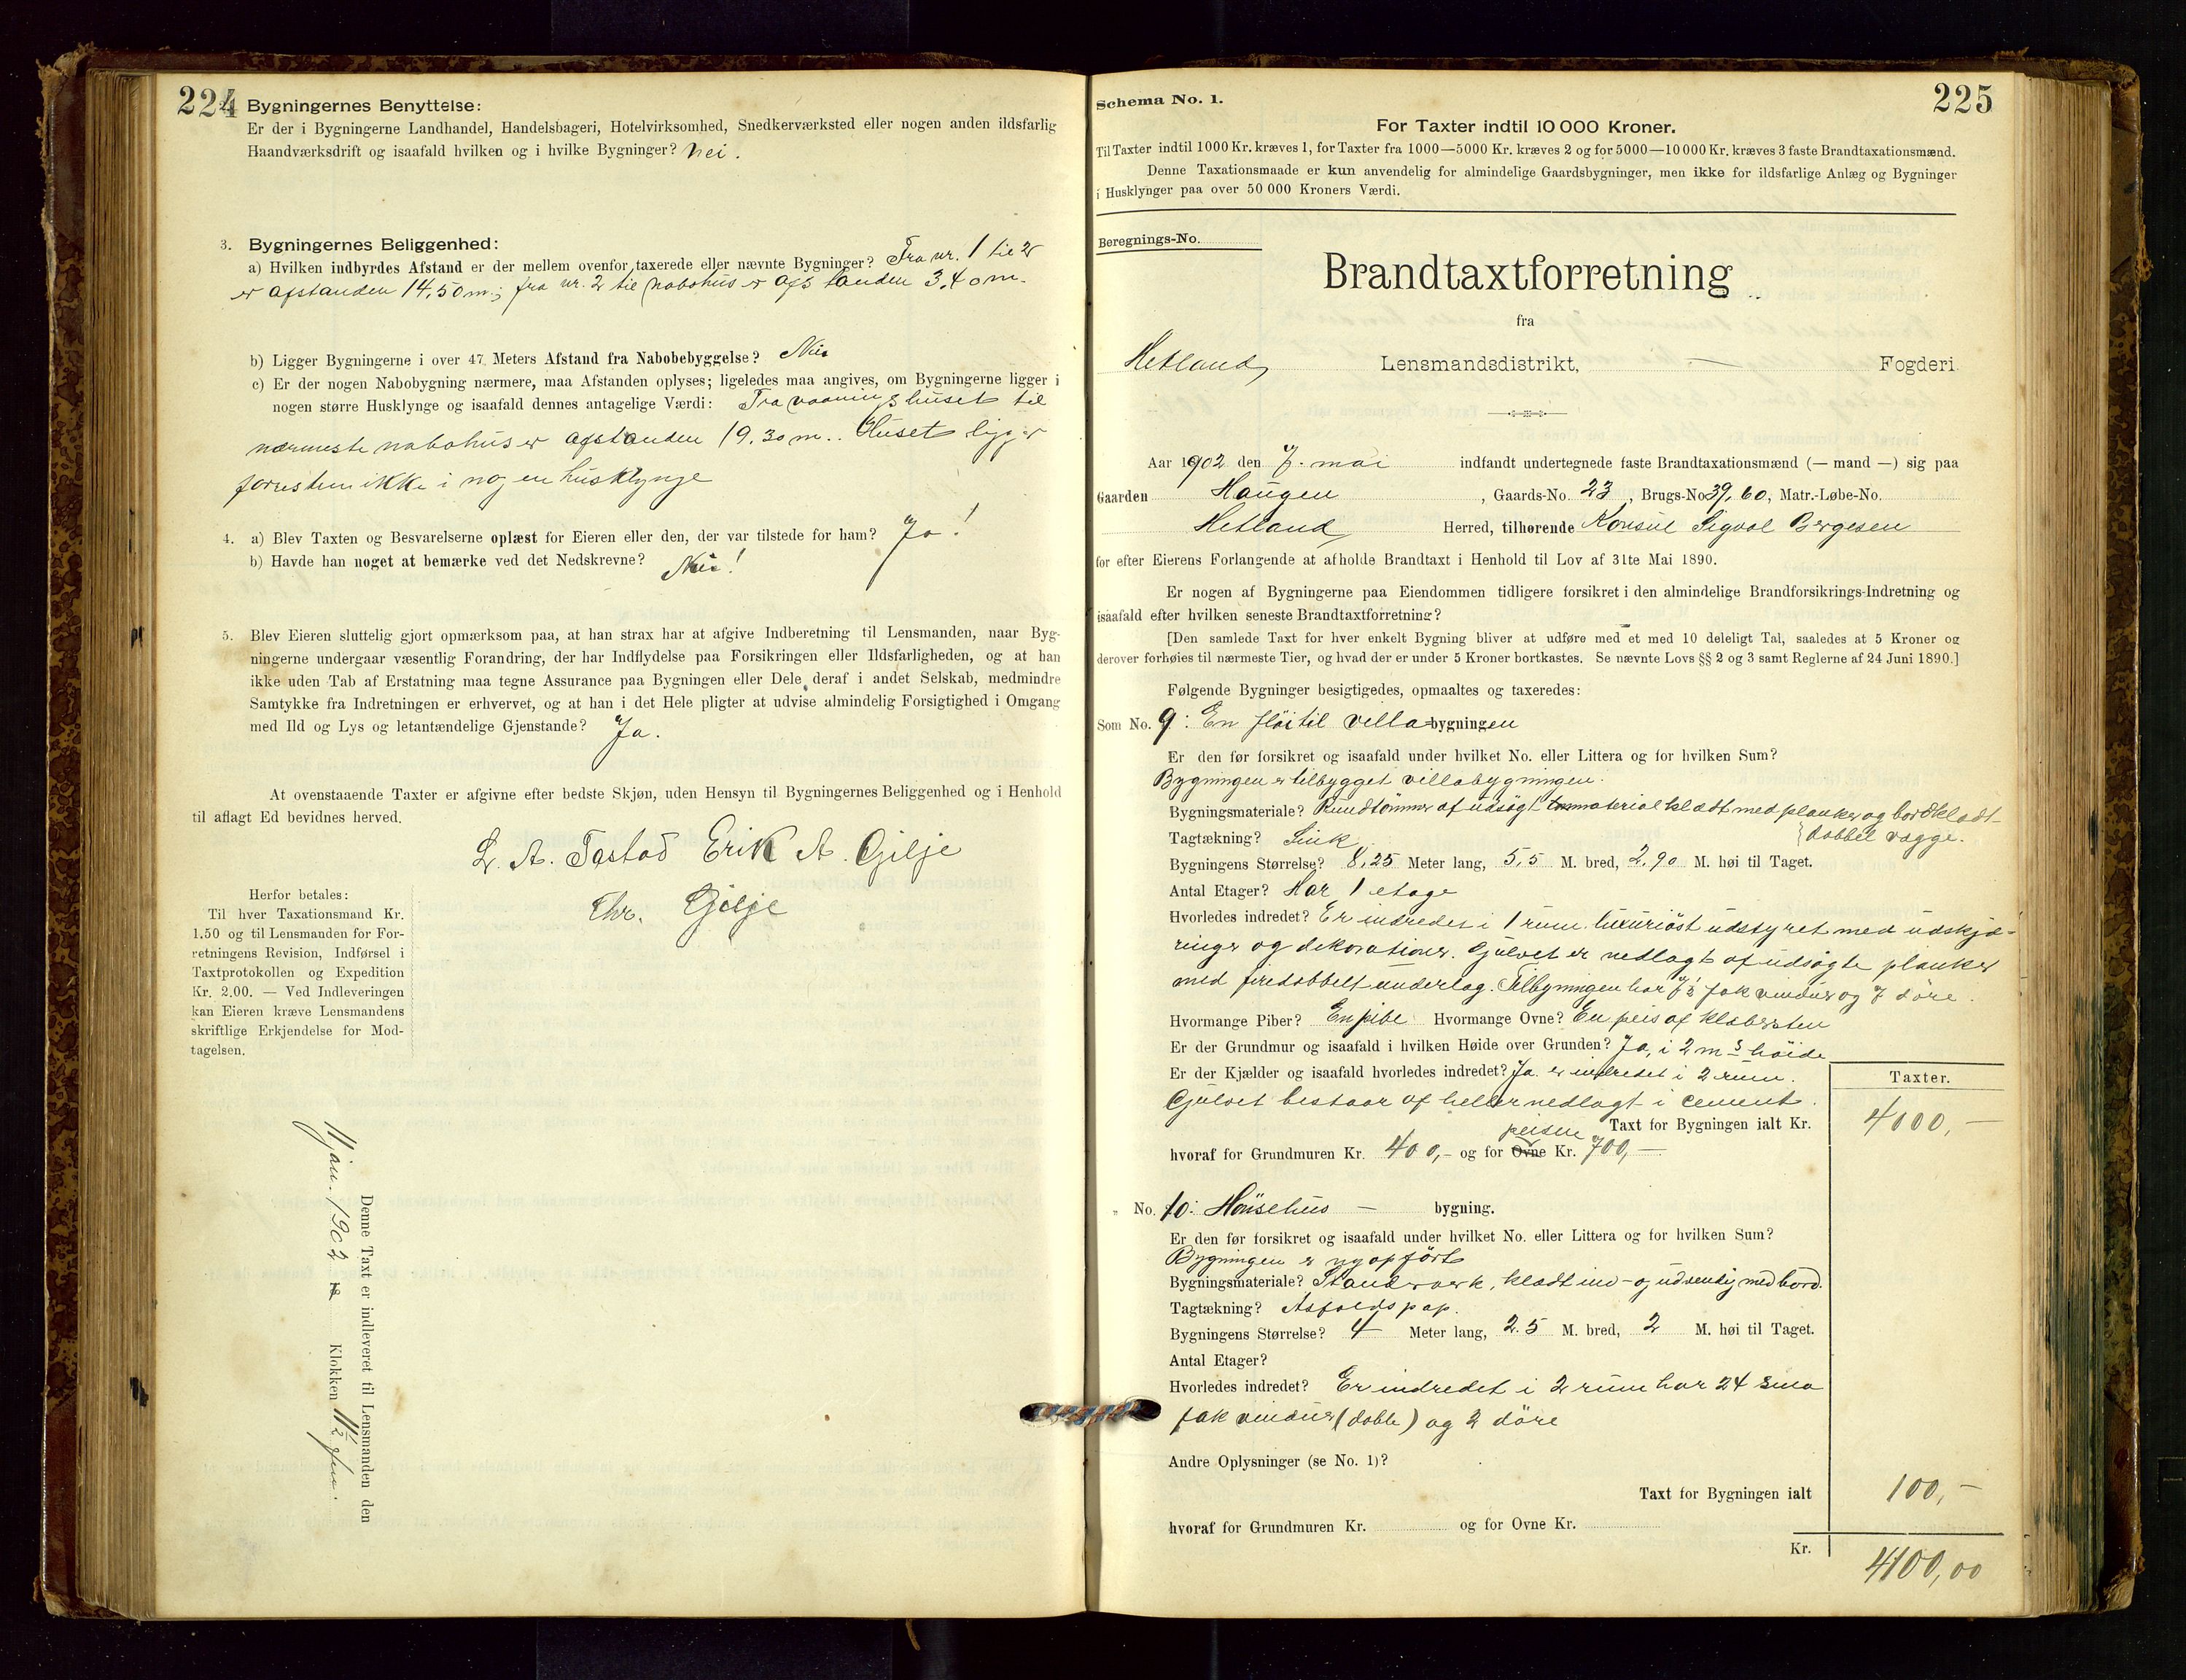 224
Bygningernes Benyttelse:
Er der i Bygningerne Landhandel, Handelsbageri, Hotelvirksomhed, Snedkerværksted eller nogen anden ildsfarlig
Haandværksdrift og isaafald hvilken og i hvilke Bygninger? Nei.
3. Bygningernes Beliggenhed:
a) Hvilken indbyrdes Afstand er der mellem ovenfor taxerede eller nævnte Bygninger? Fra nr. 1 til 2
er afstanden 14,50 m.; fra nr. 2 til nabohus er afstanden 3,40 m.
b) Ligger Bygningerne i over 47 Meters Afstand fra Nabobebyggelse? Nei
c) Er der nogen Nabobygning nærmere, maa Afstanden oplyses; ligeledes maa angives, om Bygningerne ligger i
nogen større Husklynge og isaafald dennes antagelige Værdi: Fra vaaningshuset til
nærmeste nabohus er afstanden 19,30 m.. Huset ligger
forresten ikke i nogen husklynge
4. a) Blev Taxten og Besvarelserne oplæst for Eieren eller den, der var tilstede for ham? Ja!
b) Havde han noget at bemærke ved det Nedskrevne? Nei!
5. Blev Eieren sluttelig gjort opmærksom paa, at han strax har at afgive Indberetning til Lensmanden, naar Byg-
ningerne undergaar væsentlig Forandring, der har Indflydelse paa Forsikringen eller Ildsfarligheden, og at han
ikke uden Tab af Erstatning maa tegne Assurance paa Bygningen eller Dele deraf i andet Selskab, medmindre
Samtykke fra Indretningen er erhvervet, og at han i det Hele pligter at udvise almindelig Forsigtighed i Omgang
med Ild og Lys og letantændelige Gjenstande? Ja.
At ovenstaaende Taxter er afgivne efter bedste Skjøn, uden Hensyn til Bygningernes Beliggenhed og i Henhold
til aflagt Ed bevidnes herved.
L. A. Tastad Erik A. Gilje
Chr. Gilje
Herfor betales:
Til hver Taxationsmand Kr.
1.50 og til Lensmanden for For-
retningens Revision, Indførsel i
Taxtprotokollen og Expedition
Kr. 2.00. — Ved Indleveringen
kan Eieren kræve Lensmandens
skriftlige Erkjendelse for Mod-
tagelsen.
Denne Taxt er indleveret til Lensmanden den
11 jan. 1902 18 Klokken 11½ fm.
225
Schema No. 1.
For Taxter indtil 10 000 Kroner.
Til Taxter indtil 1000 Kr. kræves 1, for Taxter fra 1000—5000 Kr. kræves 2 og for 5000—10 000 Kr. kræves 3 faste Brandtaxationsmænd.
Denne Taxationsmaade er kun anvendelig for almindelige Gaardsbygninger, men ikke for ildsfarlige Anlæg og Bygninger
i Husklynger paa over 50 000 Kroners Værdi.
Beregnings-No.
Brandtaxtforretning
fra
Hetland Lensmandsdistrikt, — Fogderi
Aar 1902 den 7. mai indfandt undertegnede faste Brandtaxationsmænd (— mand —) sig paa
Gaarden Haugen, Gaards-No. 23, Brugs-No 39, 60, Matr.-Løbe-No.
Hetland Herred, tilhørende Konsul Sigval Bergesen
for efter Eierens Forlangende at afholde Brandtaxt i Henhold til Lov af 31te Mai 1890.
Er nogen af Bygningerne paa Eiendommen tidligere forsikret i den almindelige Brandforsikrings-Indretning og
isaafald efter hvilken seneste Brandtaxtforretning?
[Den samlede Taxt for hver enkelt Bygning bliver at udføre med et med 10 deleligt Tal, saaledes at 5 Kroner og
derover forhøies til nærmeste Tier, og hvad der er under 5 Kroner bortkastes. Se nævnte Lovs §§ 2 og 3 samt Reglerne af 24 Juni 1890.]
Følgende Bygninger besigtigedes, opmaaltes og taxeredes:
Som No. 9: En fløi til villabygningen
Er den før forsikret og isaafald under hvilket No. eller Littera og for hvilken Sum?
Bygningen er tilbygget villabygningen.
Bygningsmateriale? Rundtømmer af udsøgt material klædt med planker og bordklædt
Tagtækning? Sink. dobbel vægge.
Bygningens Størrelse? 8,25 Meter lang, 5,5 M. bred, 2,90 M. høi til Taget.
Antal Etager? Har 1 etage
Hvorledes indredet? Er indredet i 1 rum luxuriøst udstyret med udskjæ-
ringer og dekorationer. Gulvet er nedlagt af udsøgte planker
med firedobbelt underlag. Tilbygningen har fak vinduer og 7 døre.
Hvormange Piber? En pibe Hvormange Ovne? En peis af klæbersten
Er der Grundmur og isaafald i hvilken Høide over Grunden? Ja, i 2 m s høide
Er der Kjælder og isaafald hvorledes indredet? Ja er indredet i 2 rum.
Gulvet bestaar af heller nedlagt i cement.
Taxter.
Taxt for Bygningen ialt Kr. 4000,—
peisen
hvoraf for Grundmuren Kr. 400,- og for Ovne Kr. 700,—
" No. 10: Hønsehus — bygning.
Er den før forsikret og isaafald under hvilket No. eller Littera og for hvilken Sum?
Bygningen er ny opført
Bygningsmateriale? Standverk, klædt ind- og udvendig med bord.
Tagtækning? Asfaldspap.
Bygningens Størrelse? 4 Meter lang, 2.5 M. bred, 2 M. høi til Taget.
Antal Etager?
Hvorledes indredet? Er indredet i 2 rum har 24 smaa
fak vinduer (doble) og 2 døre
Andre Oplysninger (se No. 1)?
Taxt for Bygningen ialt 100,—
hvoraf for Grundmuren Kr. og for Ovne Kr.
Kr. 4100,00